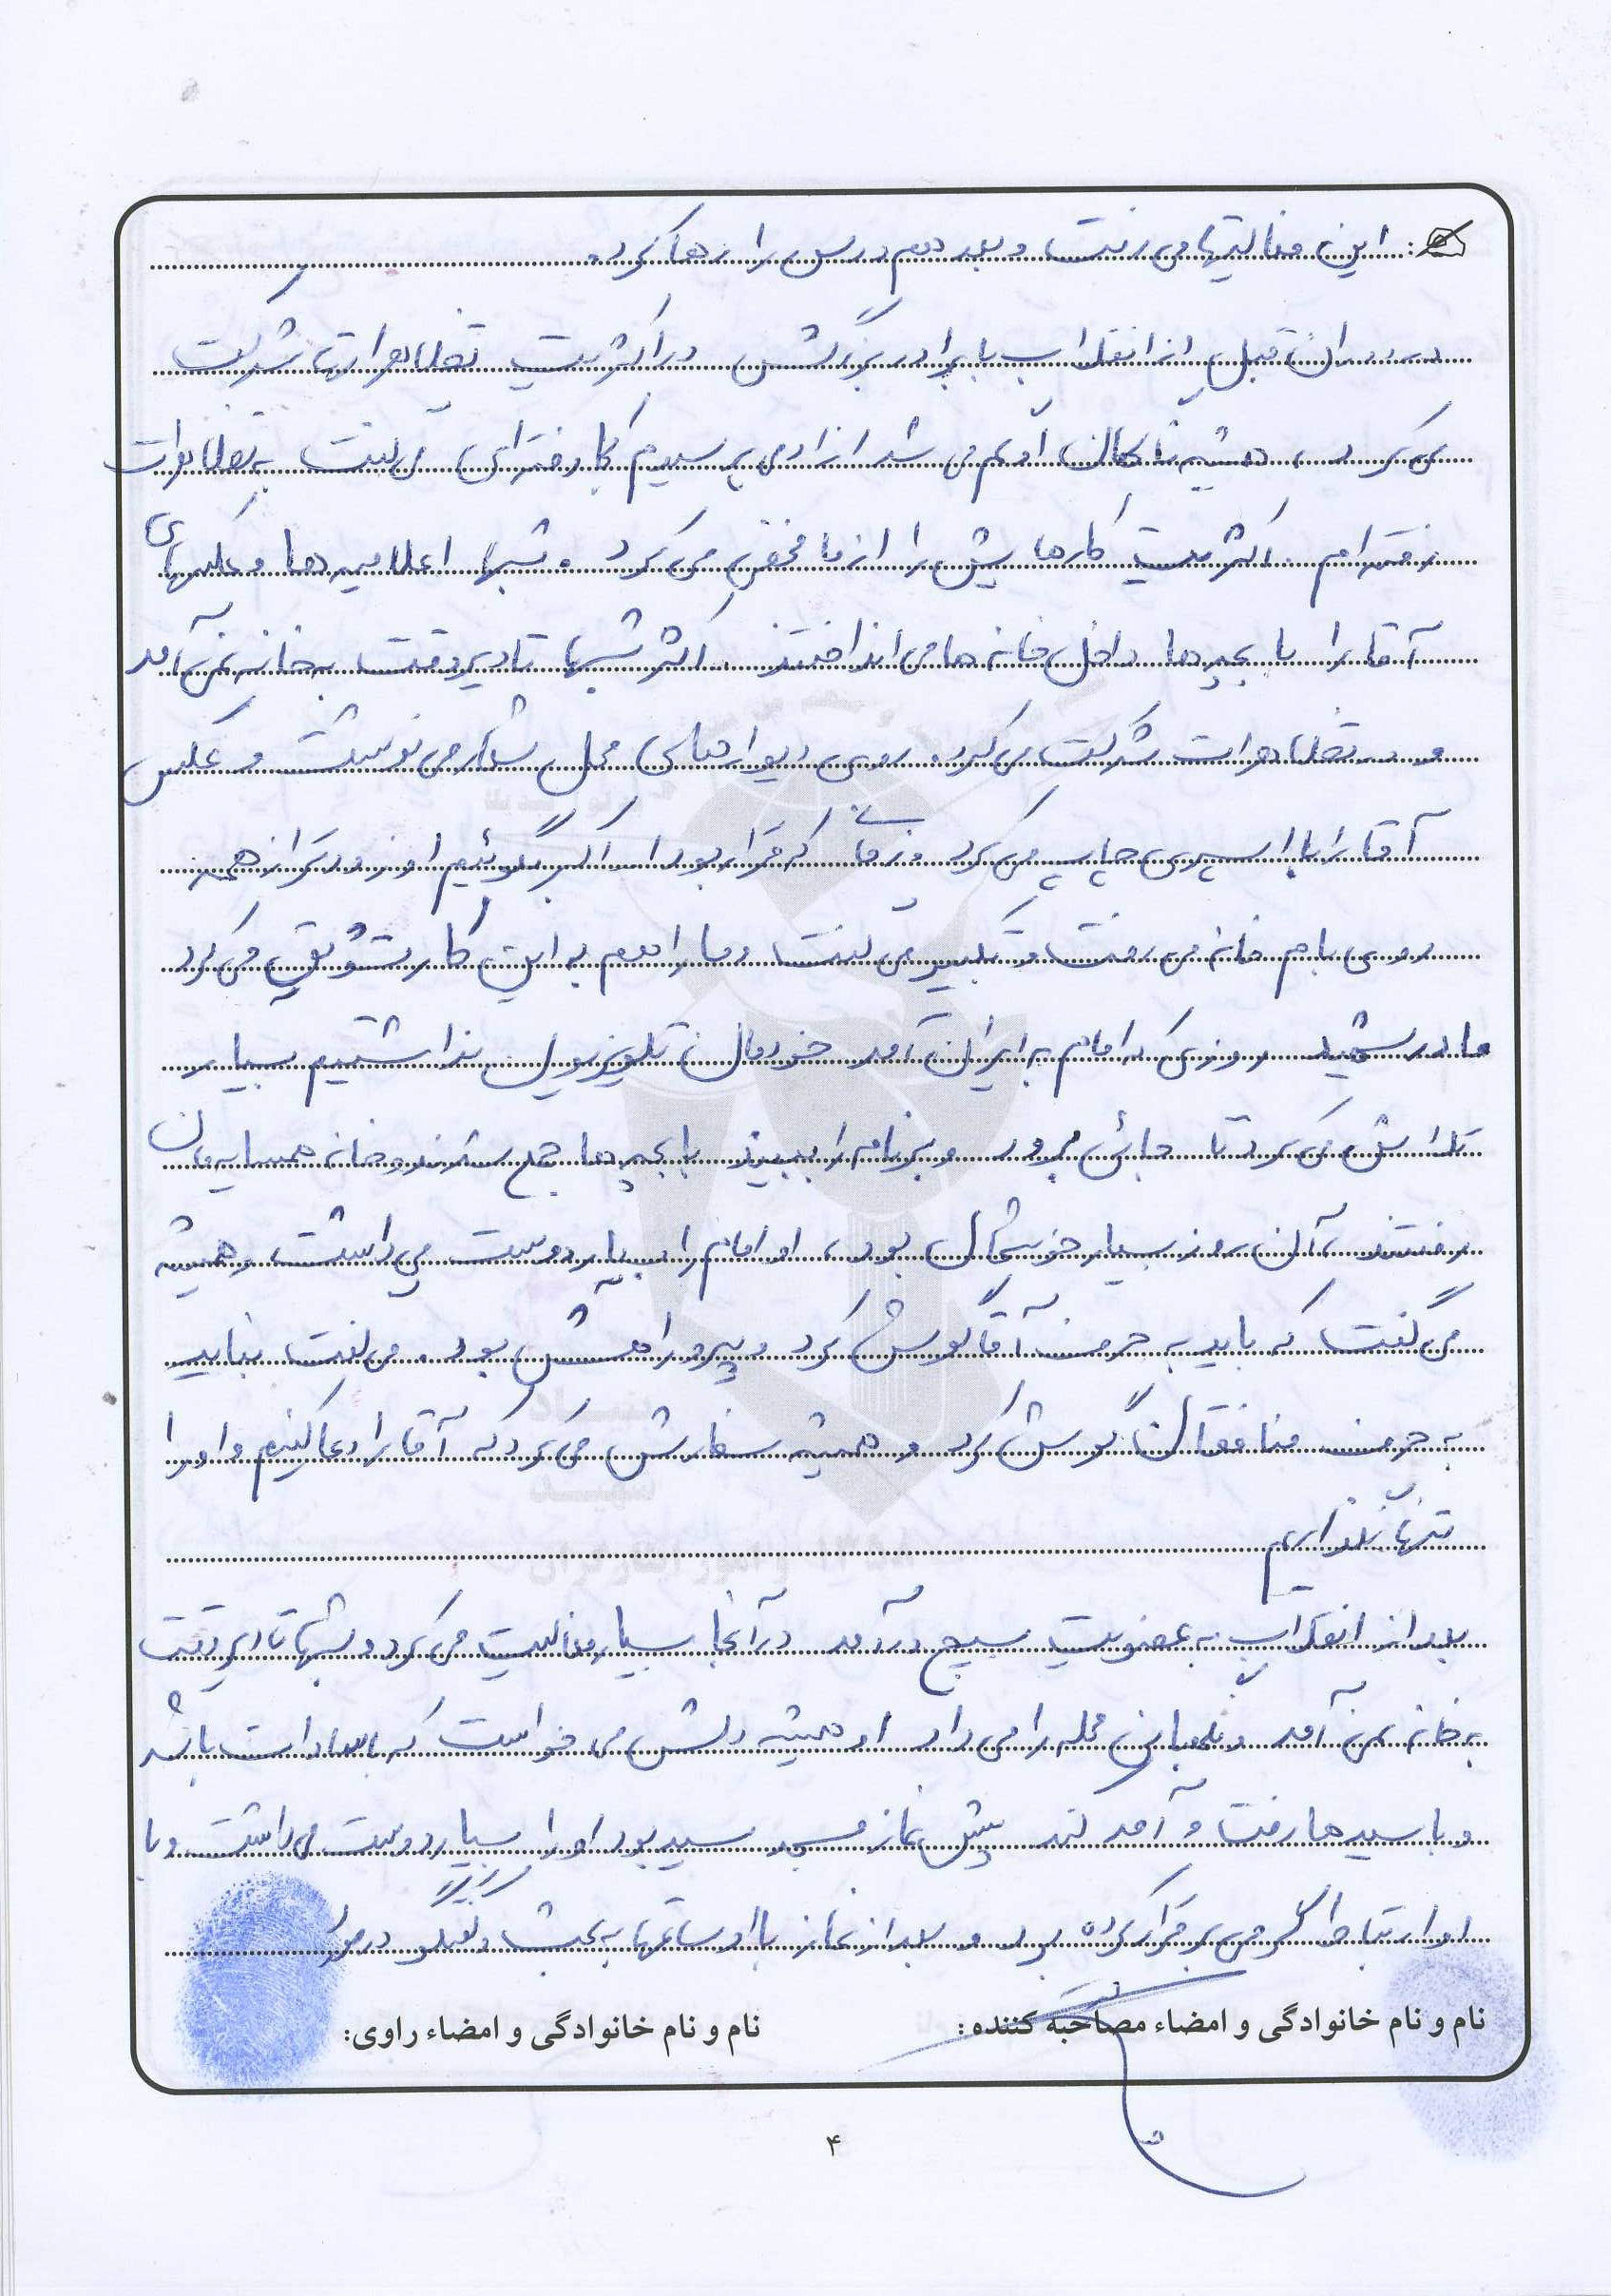 این فعالیتها می رفت و بعد هم درس را رها کرد.
در دوران قبل از انقلاب با برادر بزرگش در اکثریت تظاهراتها شرکت
می کرد، همیشه تا گم می شد از او می پرسیدم کجا رفته ای می گفت به تظاهرات
رفته ام. اکثریت کارهایش را از ما مخفی می کرد. شبها اعلامیه ها و عکسهای
آقا را با بچه ها داخل خانه ها می انداختند. اکثر شبها تا دیر وقت به خانه نمی آمد
و در تظاهرات شرکت می کرد. روی دیوارهای محل شعار می نوشت و عکس
آقا را با اسپری چاپ می کرد و زمانی که قرار بود الله اکبر بگوئیم او زودتر از همه
روی بام خانه می رفت و تکبیر می گفت و ما را هم به این کار تشویق می کرد
مادر شهید روزی که امام به ایران آمد خودمان تلویزیون نداشتیم بسیار
تلاش می کرد تا جائی برود و برنامه را ببیند با بچه ها جمع شدند و خانه همسایه مان
رفتند، آن روز بسیار خوشحال بود، او امام را بسیار دوست می داشت و همیشه
می گفت که باید به حرف آقا گوش کرد و پیرو راهش بود. می گفت نباید
به حرف منافقان گوش کرد و همیشه سفارش می کرد که آقا را دعا کنیم و او را
تنها نگذاریم
بعد از انقلاب به عضویت بسیج درآمد در آنجا بسیار فعالیت می کرد و شبها تا دیر وقت
به خانه نمی آمد و نگهبانی محله را می داد او همیشه دلش می خواست که با سادات باشد
و با سیدها رفت و آمد کند پیش نماز مسجد سید بود او را بسیار دوست می داشت و با
او ارتباط گرمی برقرار کرده بود و بعد از نماز با او ساعتها به بحث و گفتگو در مورد
نام و نام خانوادگی و امضاء مصاحبه کننده: نام و نام خانوادگی و امضاء راوی:
۴